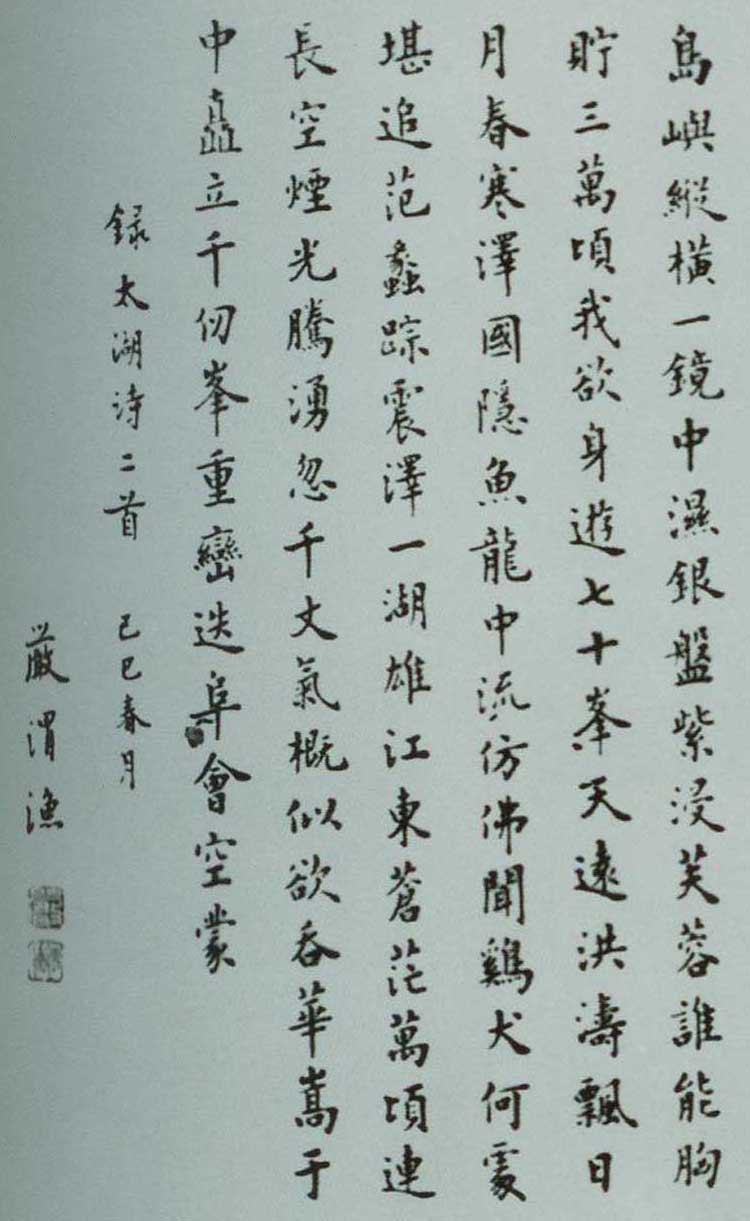 島嶼縱橫一鏡中濕銀盤紫浸芙蓉誰能胸
貯三萬頃我欲身遊七十峯天遠洪濤飄日
月春寒澤國隱魚龍中流仿佛聞鷄犬何處
堪追范蠡踪震澤一湖雄江東蒼茫萬頃連
長空煙光騰湧忽千丈氣概似欲吞華嵩于
中矗立千仞峯重巒迭阜會空蒙
錄太湖诗二首 己巳春月
嚴渭漁